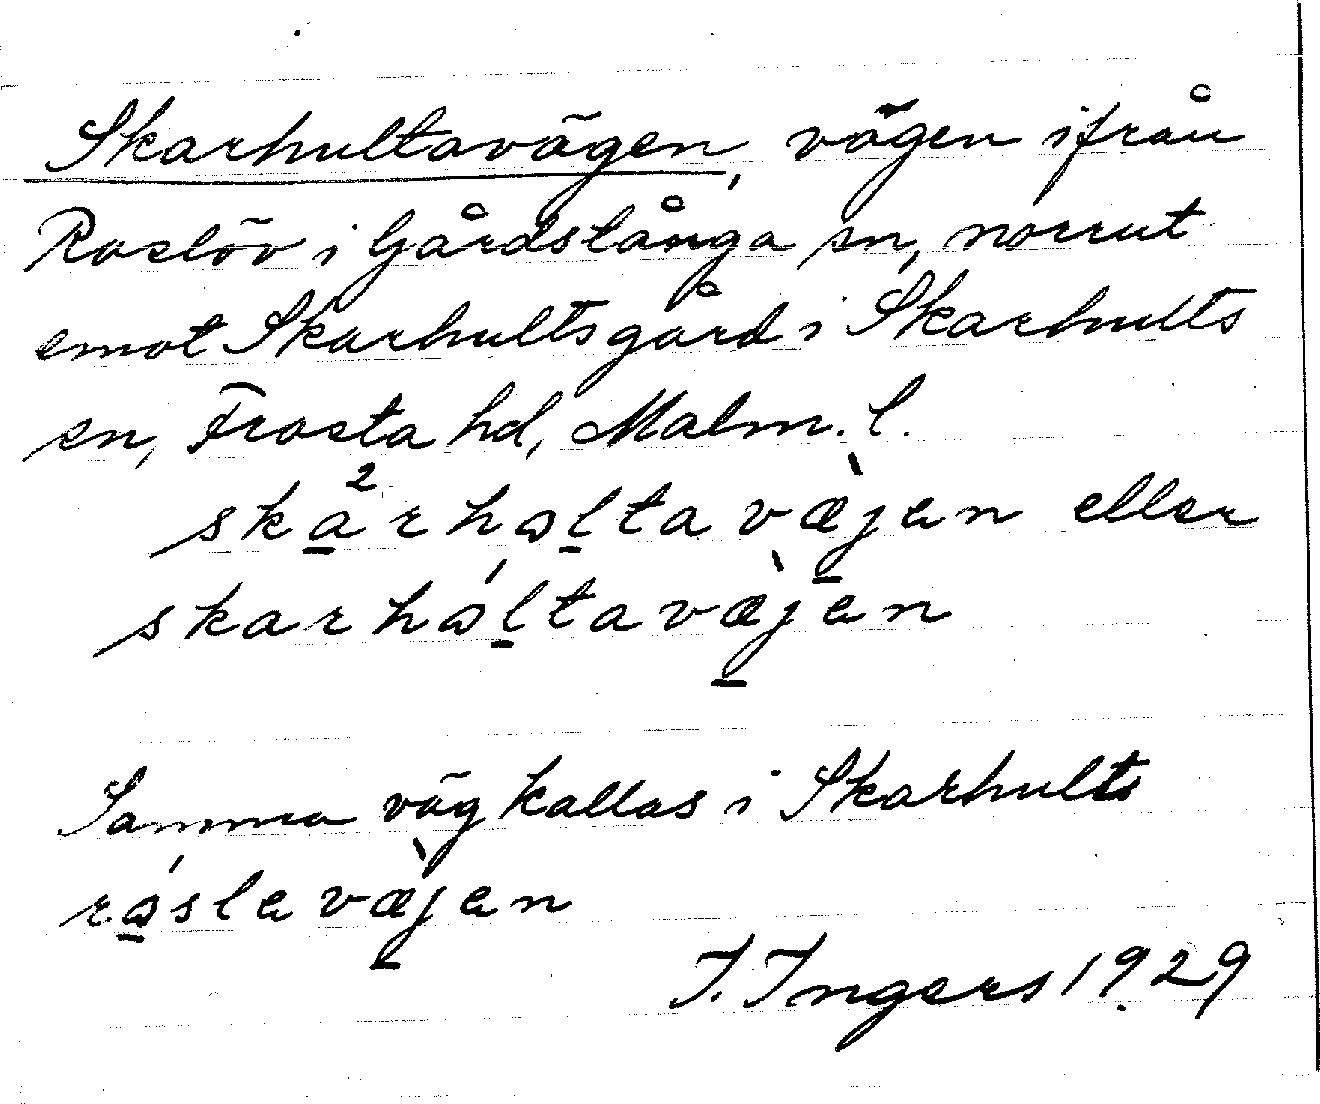 Skarhultavägen, vägen ifrån
Roslöv i Gårdstånga sn, norrut
emot Skarhultsgård i Skarhults
sn, Frosta hd, Malm. l.
ska²rhɷltavæ̀jen eller
skarhɷ́ltavæ̀jen
Samma väg kallas i Skarhults
rɷ́slevæ̀jen
I. Ingers 1929